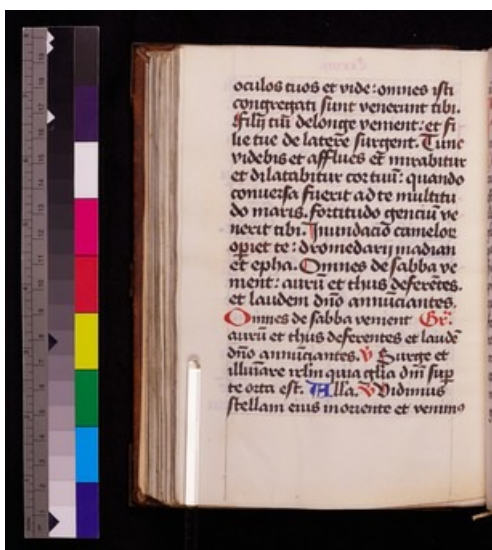 oculos tuos et vide: omnes isti
congregati sunt venerunt tibi.
Filij tui de longe venient: et fi
lie tue de latere surgent. Tunc
videbis et afflues et mirabitur
et dilatabitur cor tuū: quando
conuersa fuerit ad te multitu
do maris. fortitudo genciū ve
nerit tibi. Inundacio camelor
opiet te: dromedarij madian
et epha. Omnes de sabba ve
nient: aurū et thus deferētes.
et laudem dn̄o annūciantes.
Omnes de sabba venient Gr̄.
aurū et thus deferentes et laudē
dn̄o annūciantes. v̄ Surge et
illuīare irlm quia glīa dnī sup
te orta est. Alla. v̄ Vidimus
stellam eius in oriente et venimꝰ